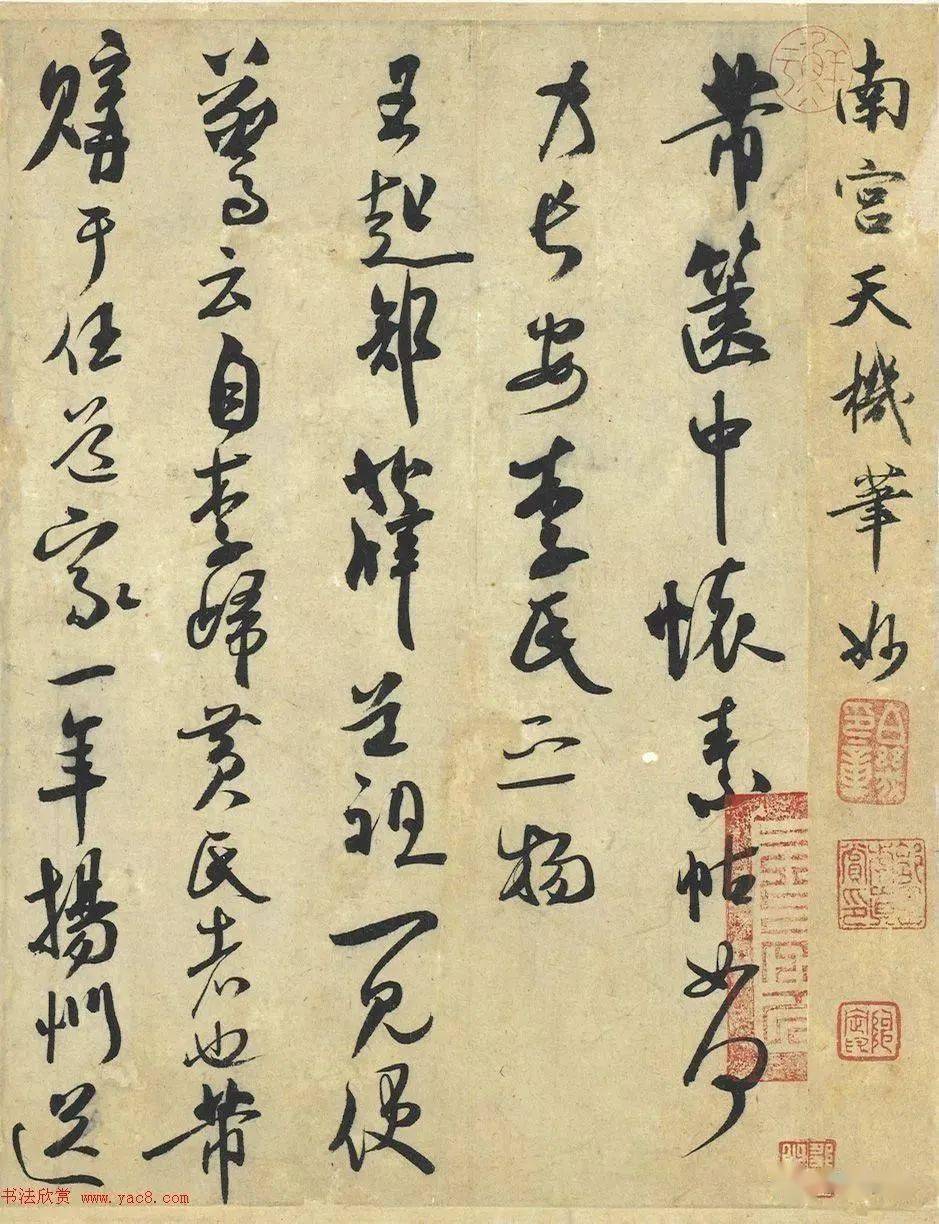 南宮天機筆妙
芾篋中懷素帖如何
乃長安李氏之物
王起部薛道祖一見便
驚云自李歸黃氏者也芾
購于任道家一年揚州送
书法欣赏 www.yac8.com